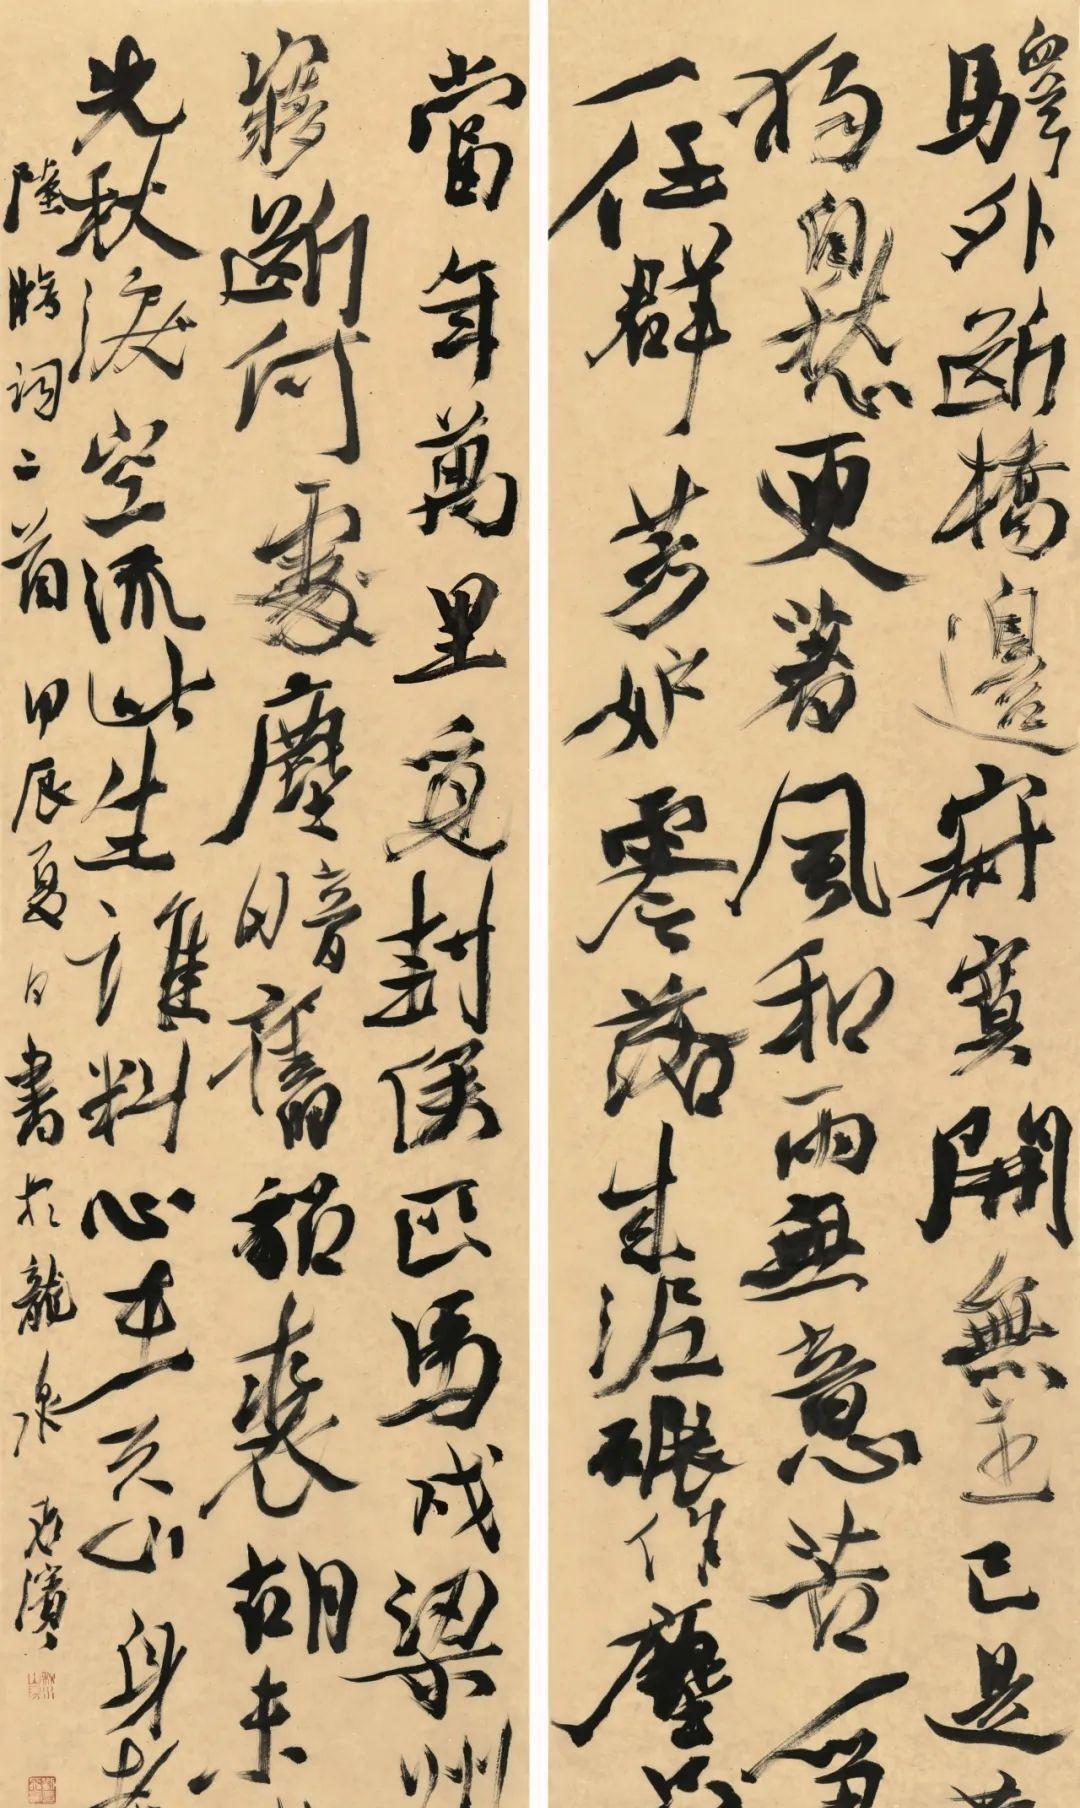 驛外斷橋邊寂寞開無主已是
獨自愁更著風和雨無意苦爭
一任群芳妒零落成泥碾作塵只
當年萬里覓封侯匹馬戍梁州
夢斷何處塵暗舊貂裘胡未
先秋淚空流此生誰料心在天山身老
陸游詞二首 甲辰夏日書於龍泉 濱